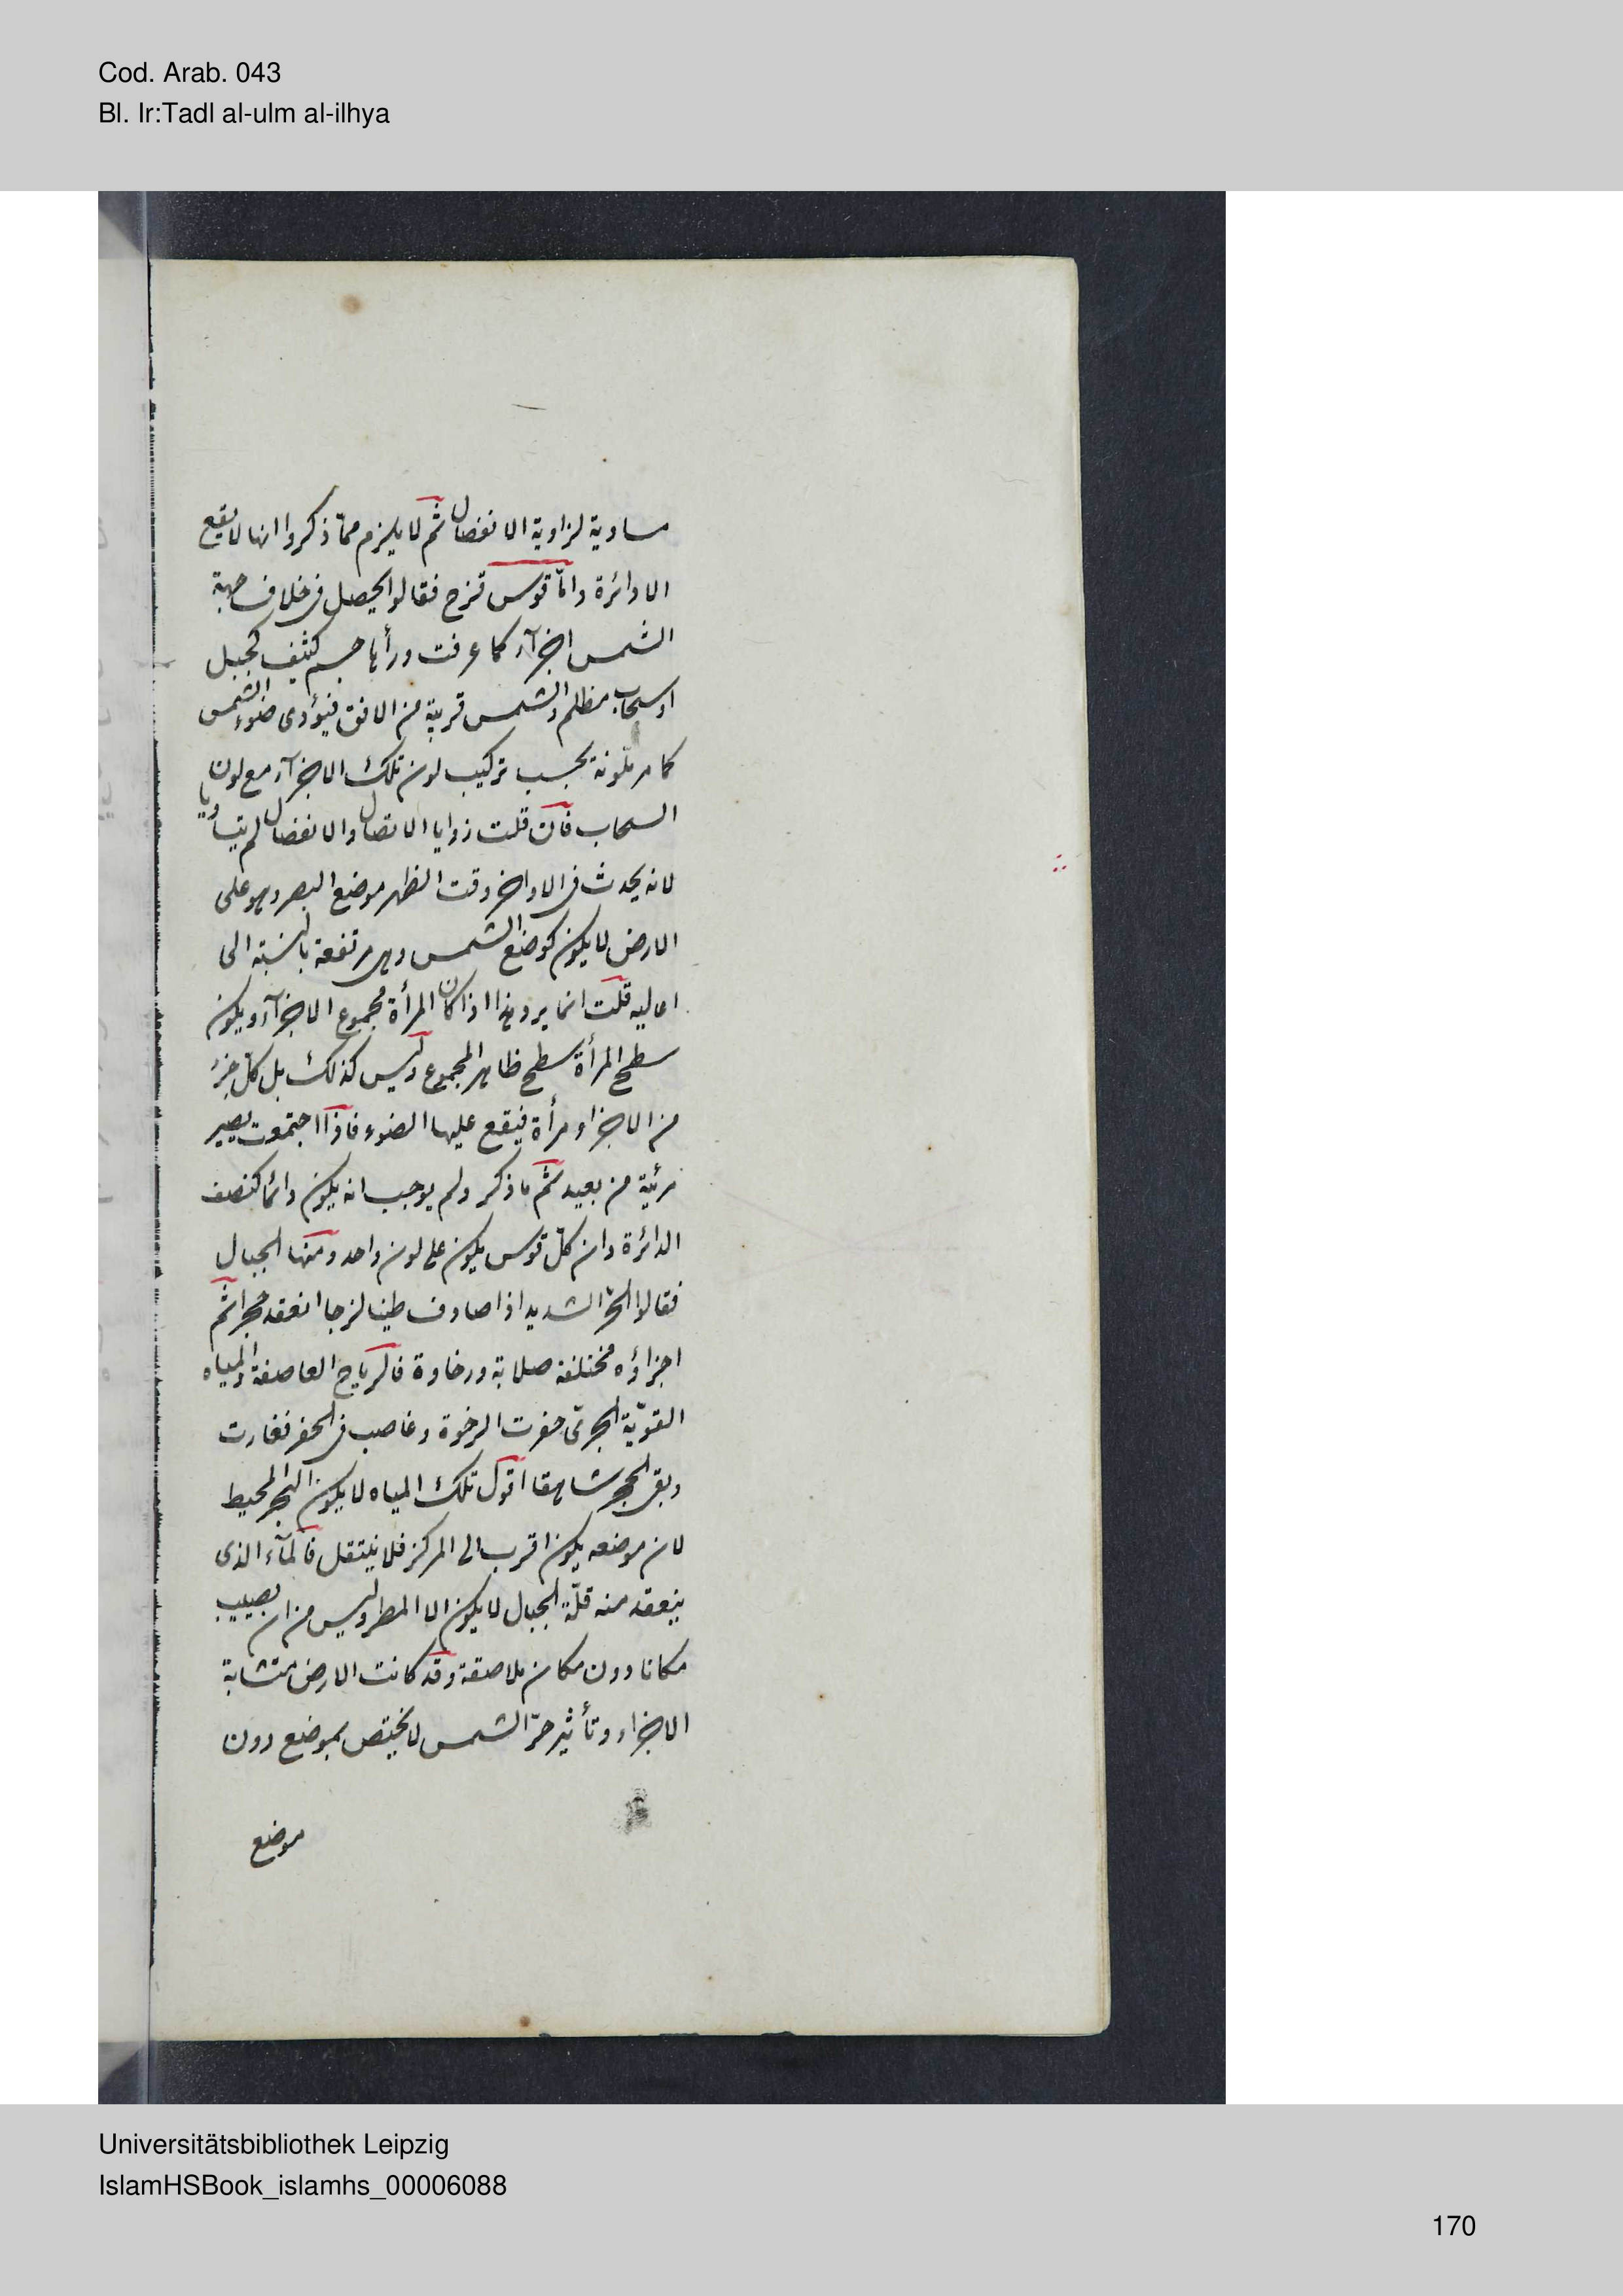 Cod. Arab. 043
Bl. Ir:Tadl al-ulm al-ilhya
مساوية لزاوية الانفصال ثم لا يلزم مما ذكروا انها لا يقع
الا دائرة واما قوس قزح فقالوا يحصل فى خلاف جهة
الشمس اجزآء كما عرفت ورأها جسم كثيف كجبل
او سحاب مظلم والشمس قريبة من الافق فيؤدى ضوء الشمس
كما مر تلونة بحسب تركيب لون تلك الاجزآء مع لون
السحاب فان قلت زوايا الاتصال والانفصال لم يتساويا
لانه يحدث فى الاواخر وقت الظهر موضع البصر وهو على
الارض لا يكون كوضع الشمس وهى مرتفعة بالنسبة الى
اعاليه قلت انما يرد هذا اذا كان المرأة مجموع الاجزآء ويكون
سطح المرأة سطح ظاهر المجموع وليس كذلك بل كل جزء
من الاجزاء مرأة فيقع عليها الضوء فاذا اجتمعت يصير
مرئية من بعيد ثم ما ذكر ولم يوجب انه يكون دائما كنصف
الدائرة وان كل قوس يكون على لون واحد ومنها الجبال
فقالوا الحر الشديد اذا صادف طينا لزجا انعقد حجرا ثم
اجزاؤه مختلفة صلابة ورخاوة فالرياح العاصفة والمياه
القوية الجرى حفرت الرخوة وغاصب فى الحفر فغارت
وبقى الحجر شاهقا اقول تلك المياه لا يكون البحر المحيط
لان موضعه يكون اقرب الى المركز فلا ينتقل فالمآء الذى
ينعقد منه قلة الجبال لا يكون الا المطر وليس من ان يصيب
مكانا دون مكان ملاصقة وقد كانت الارض متشابة
الاجزاء وتأثير حر الشمس لا يختص بموضع دون
موضع
Universitätsbibliothek Leipzig
IslamHSBook_islamhs_00006088
170